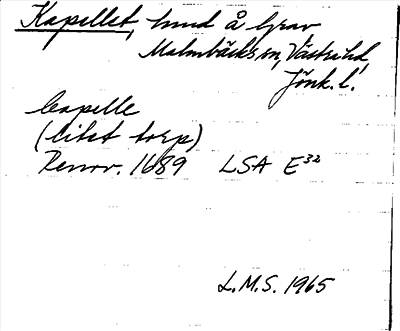 Kapellet, hmd å Grav
Malmbäcks sn, Västra hd,
Jönk. l.
Capelle
(litet torp)
Renov. 1689 LSA E³²
L.M.S. 1965